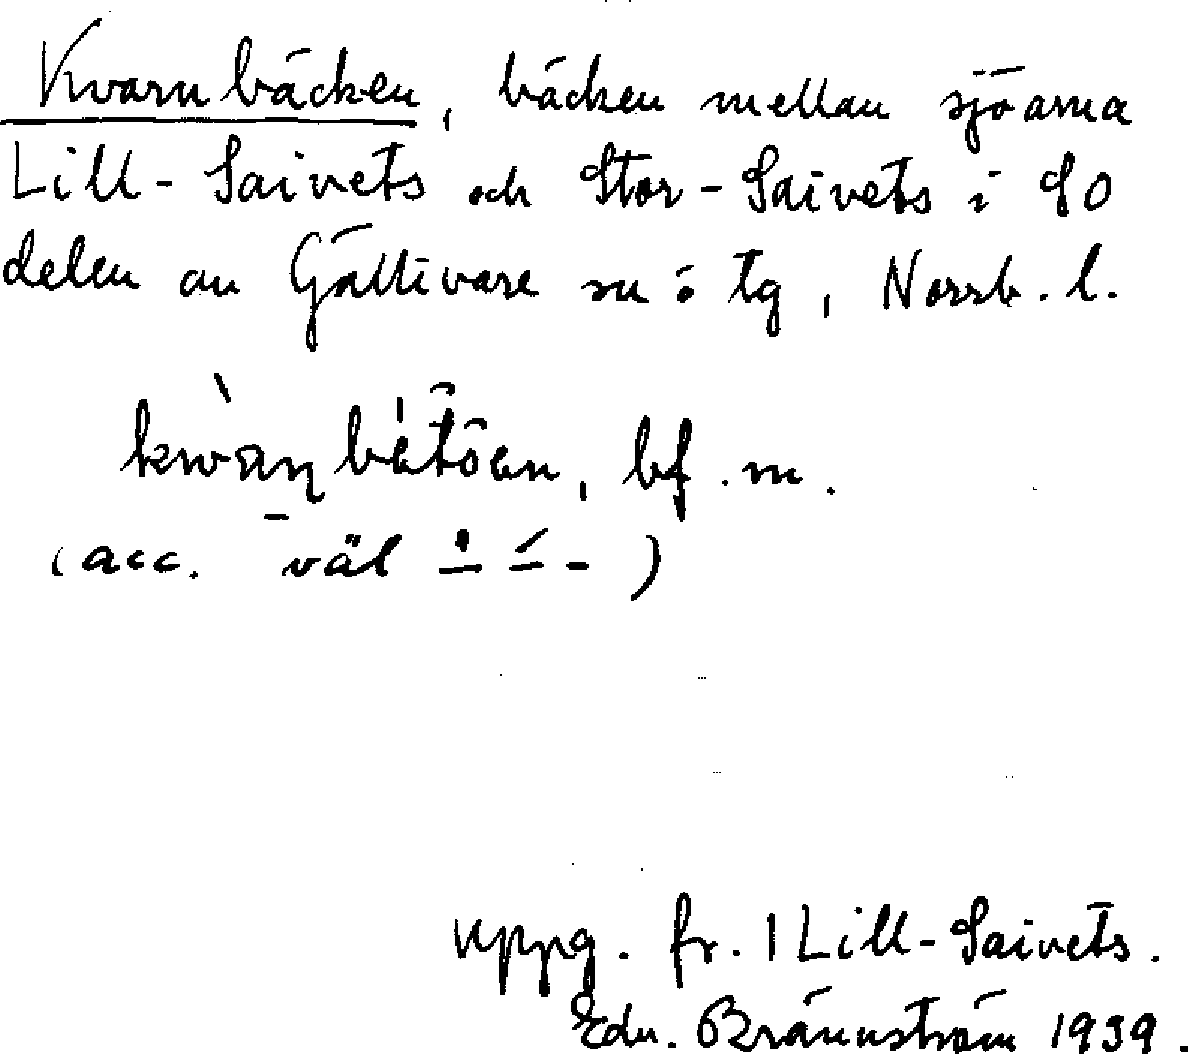 Kvarnbäcken, bäcken mellan sjöarna
Lill-Saivets och Stor-Saivets i SO
delen av Gällivare sn o tg, Norrb. l.
bf. m.
(acc. väl )
uppg. fr. 1 Lill-Saivets.
Edv. Brännström 1939.